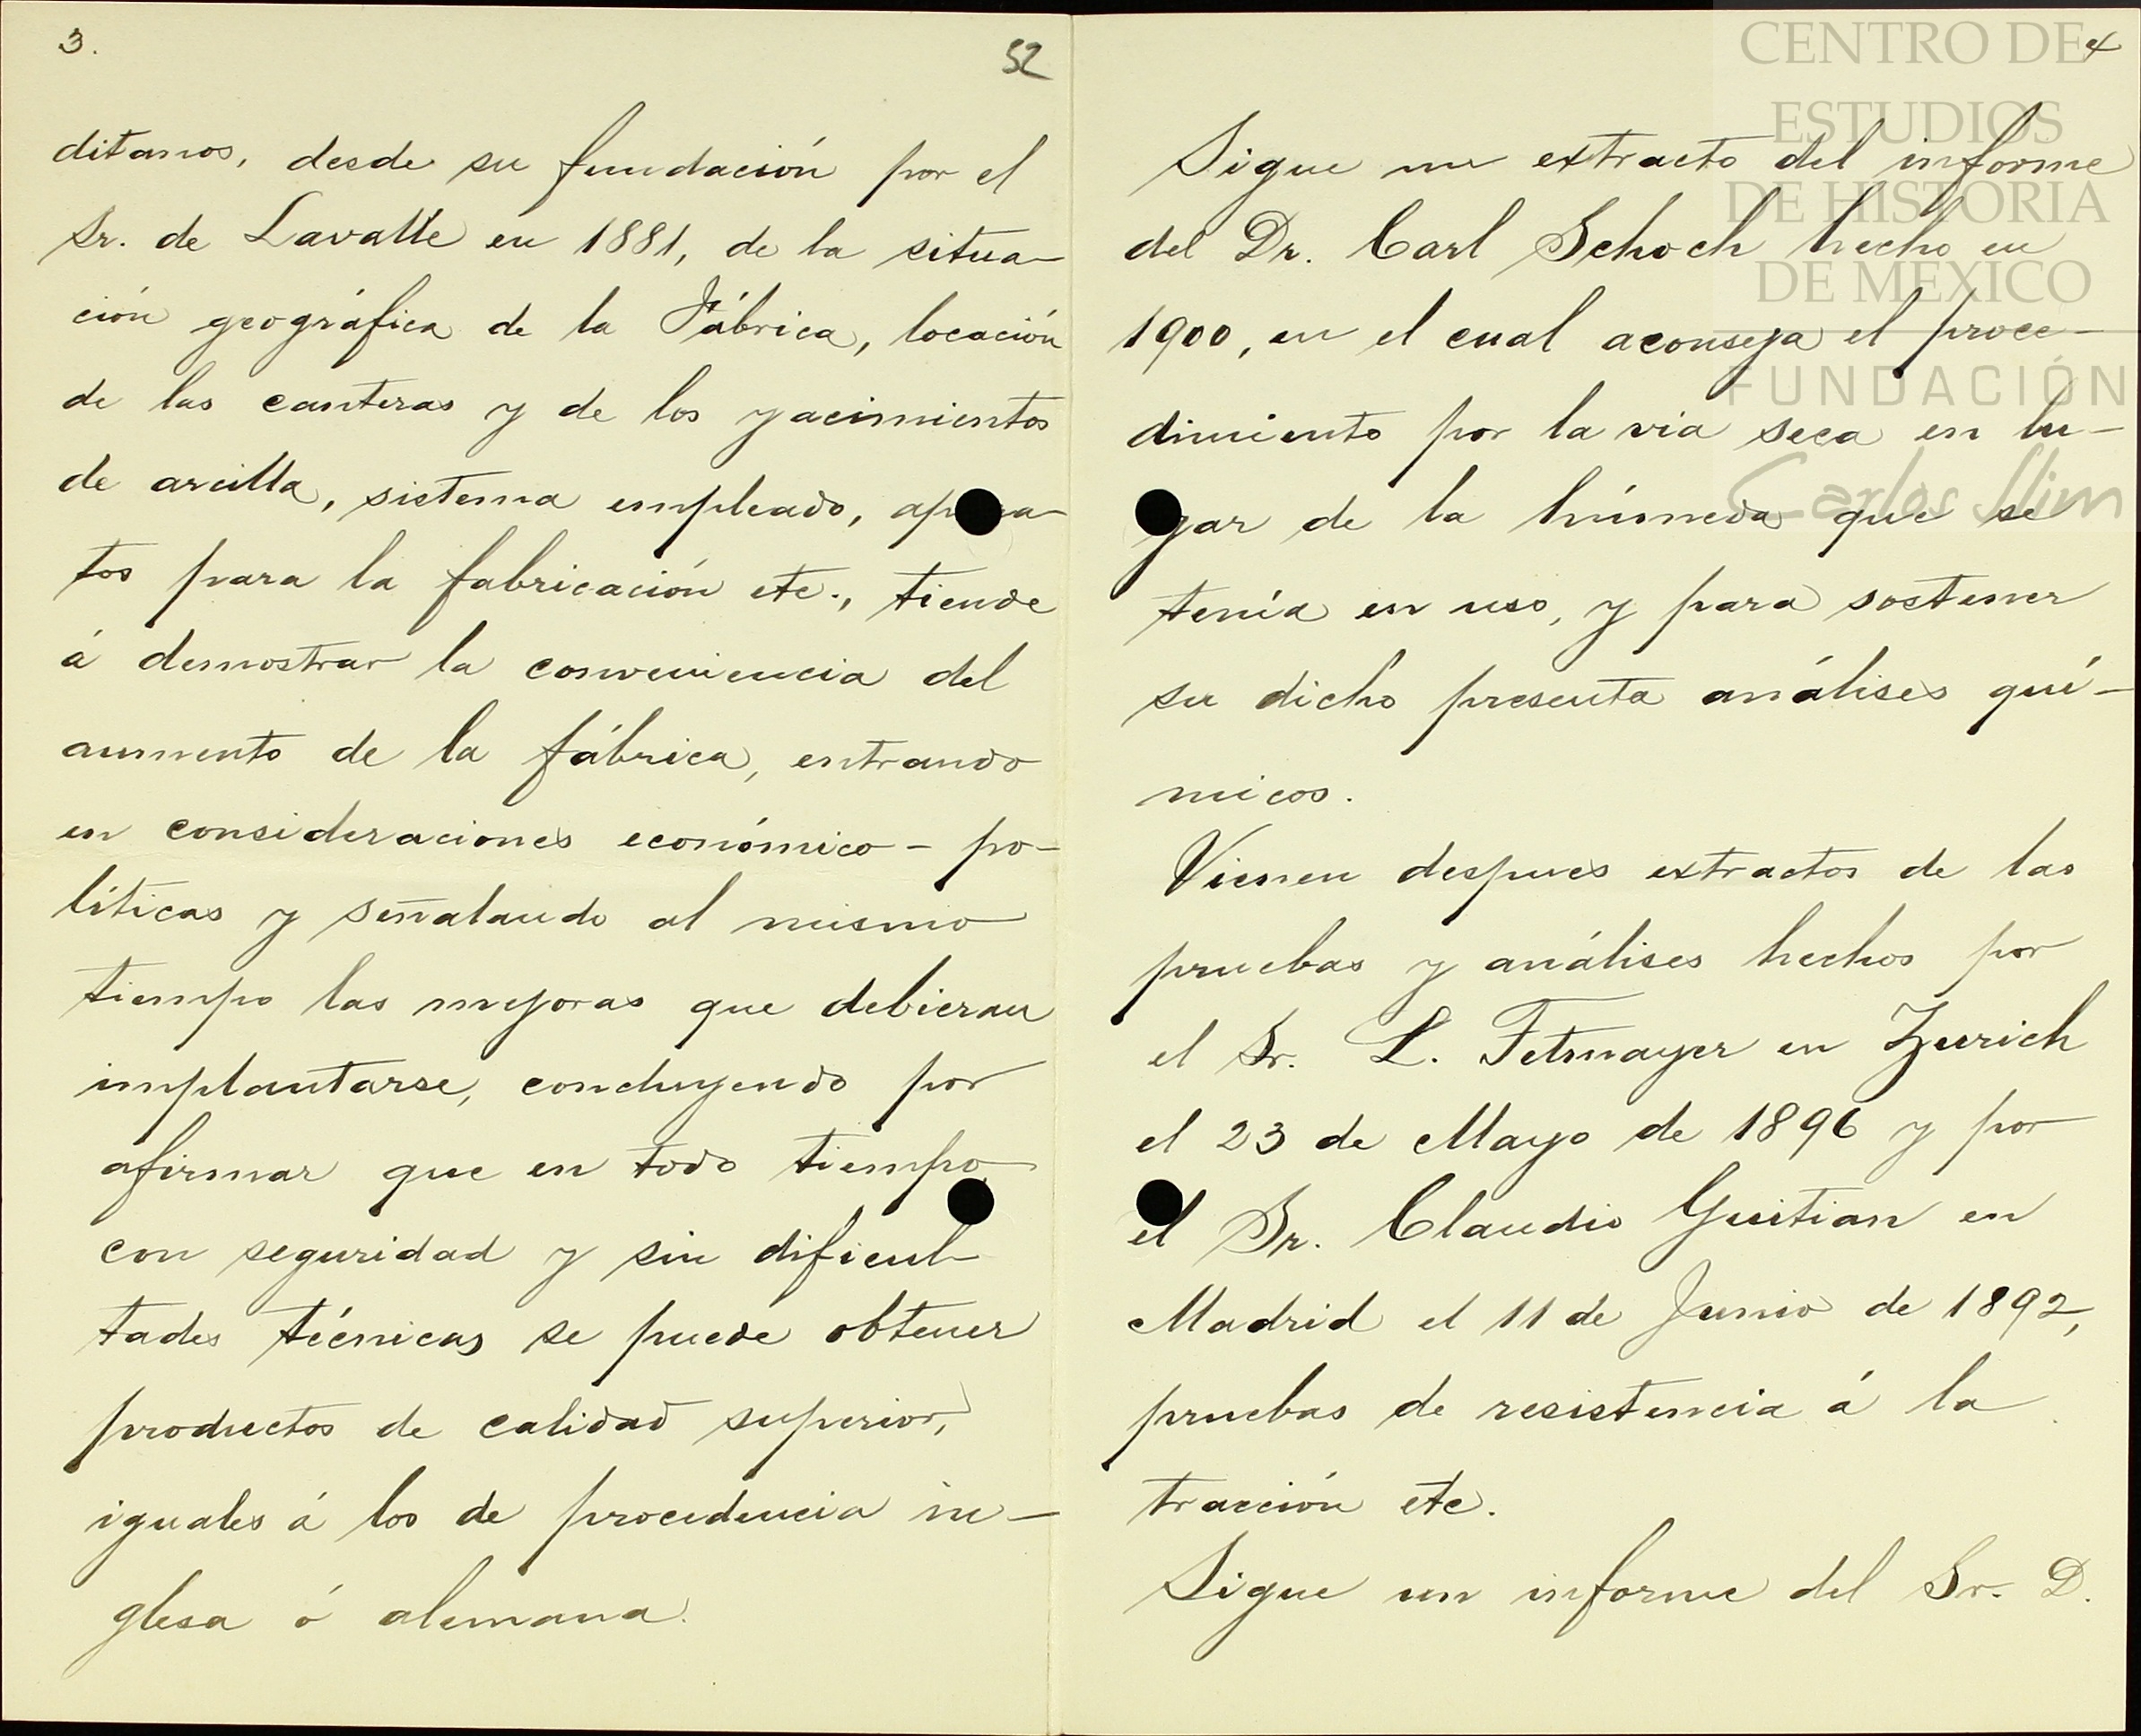 3.
52
ditamos, desde su fundación por el
Sr. de Lavalle en 1881, de la situa-
ción geográfica de la Fábrica, locación
de las canteras y de los yacimientos
de arcilla, sistema empleado, apara-
tos para la fabricación etc., tiende
á demostrar la conveniencia del
aumento de la fábrica, entrando
en consideraciones económico-po-
líticas y señalando al mismo
tiempo las mejoras que debieran
implantarse, concluyendo por
afirmar que en todo tiempo,
con seguridad y sin dificul-
tades técnicas se puede obtener
productos de calidad superior,
iguales á los de procedencia in-
glesa ó alemana.
4
Sigue un extracto del informe
del Dr. Carl Schoch hecho en
1900, en el cual aconseja el proce-
dimiento por la via seca en lu-
gar de la húmeda que se
tenía en uso, y para sostener
su dicho presenta análises quí-
micos.
Vienen despues extractos de las
pruebas y análises hechos por
el Sr. L. Tetmayer en Zurich
el 23 de Mayo de 1896 y por
el Sr. Claudio Guitian en
Madrid el 11 de Junio de 1892,
pruebas de resistencia á la
tracción etc.
Sigue un informe del Sr. D.
CENTRO DE
ESTUDIOS
DE HISTORIA
DE MEXICO
FUNDACIÓN
Carlos Slim